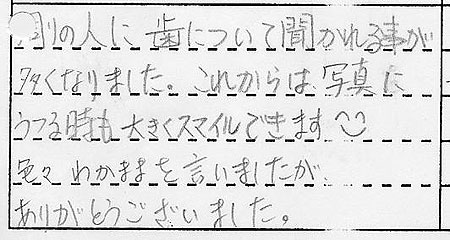 別の人に歯について聞かれる事が
多くなりました。これからは写真に
うつる時も大きくスマイルできます
色々わがままを言いましたが、
ありがとうございました。